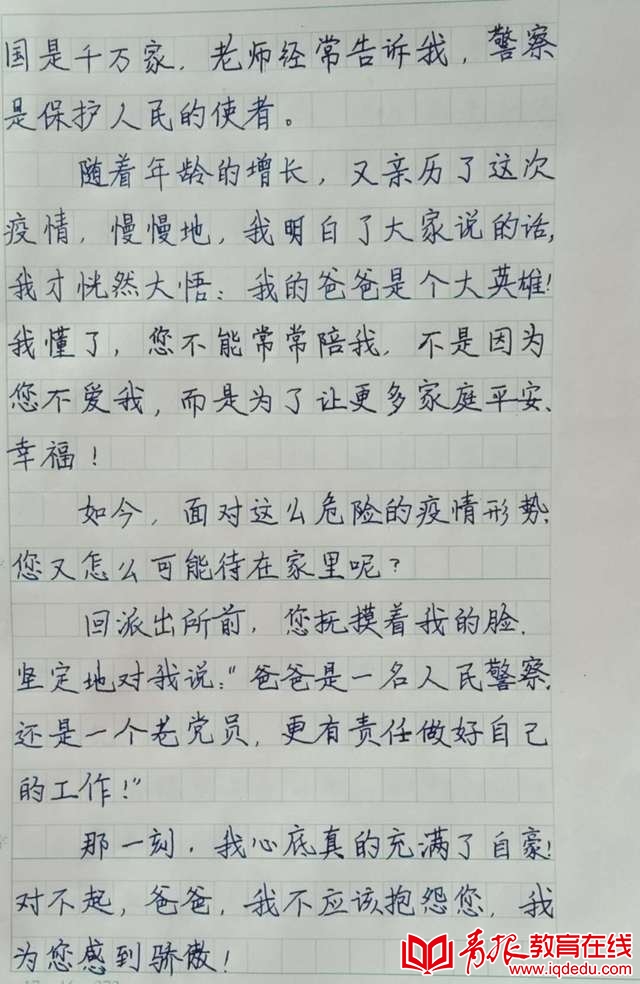 国是千万家，老师经常告诉我，警察
是保护人民的使者。
随着年龄的增长，又亲历了这次
疫情，慢慢地，我明白了大家说的话，
我才恍然大悟：我的爸爸是个大英雄！
我懂了，您不能常常陪我，不是因为
您不爱我，而是为了让更多家庭平安、
幸福！
如今，面对这么危险的疫情形势，
您又怎么可能待在家里呢？
回派出所前，您抚摸着我的脸，
坚定地对我说：“爸爸是一名人民警察，
还是一个老党员，更有责任做好自己
的工作！”
那一刻，我心底真的充满了自豪！
对不起，爸爸，我不应该抱怨您，我
为您感到骄傲！
青报教育在线
www.iqdedu.com